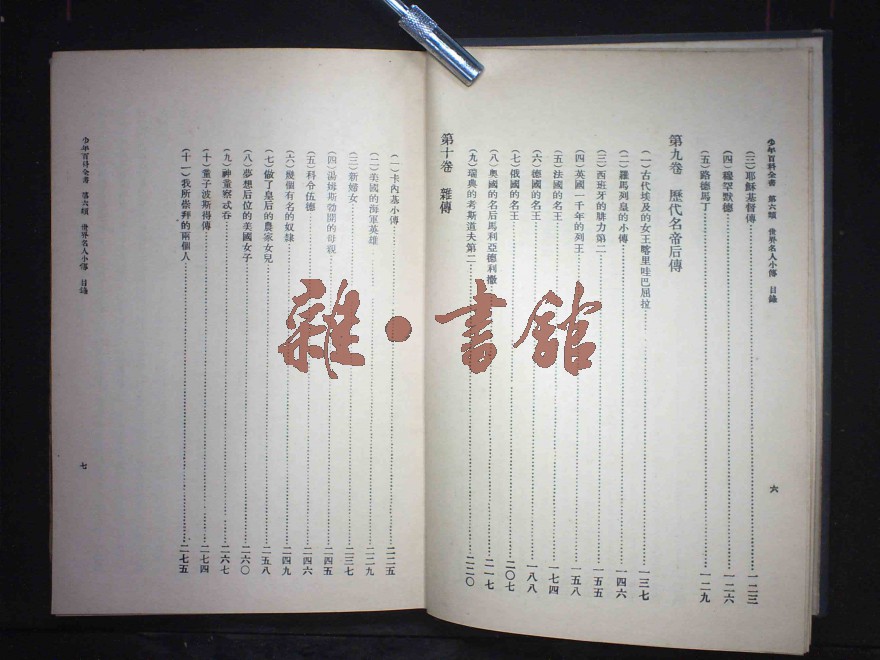 少年百科全書 第六類 世界名人小傳 目錄
六
(三)耶穌基督傳……一二三
(四)穆罕默德……一二六
(五)路德馬丁……一二九
第九卷 歷代名帝后傳
(一)古代埃及的女王喀里哇巴屈拉……一三七
(二)羅馬列皇的小傳……一四六
(三)西班牙的腓力第二……一五五
(四)英國一千年的列王……一五八
(五)法國的名王……一七四
(六)德國的名王……一八八
(七)俄國的名王……二〇七
(八)奧國的名后馬利亞德利撒……二一七
(九)瑞典的考斯道夫第二……二二〇
第十卷 雜傳
(一)卡內基小傳……二二五
(二)美國的海軍英雄……二二九
(三)新婦女……二三七
(四)湯姆斯勃開的母親……二四五
(五)科令伍德……二四六
(六)幾個有名的奴隸……二四九
(七)做了皇后的農家女兒……二五八
(八)夢想后位的美國女子……二六〇
(九)神童察忒吞……二六七
(十)童子波斯得傳……二七四
(十一)我所崇拜的兩個人……二七五
少年百科全書 第六類 世界名人小傳 目錄
七
雜·書館